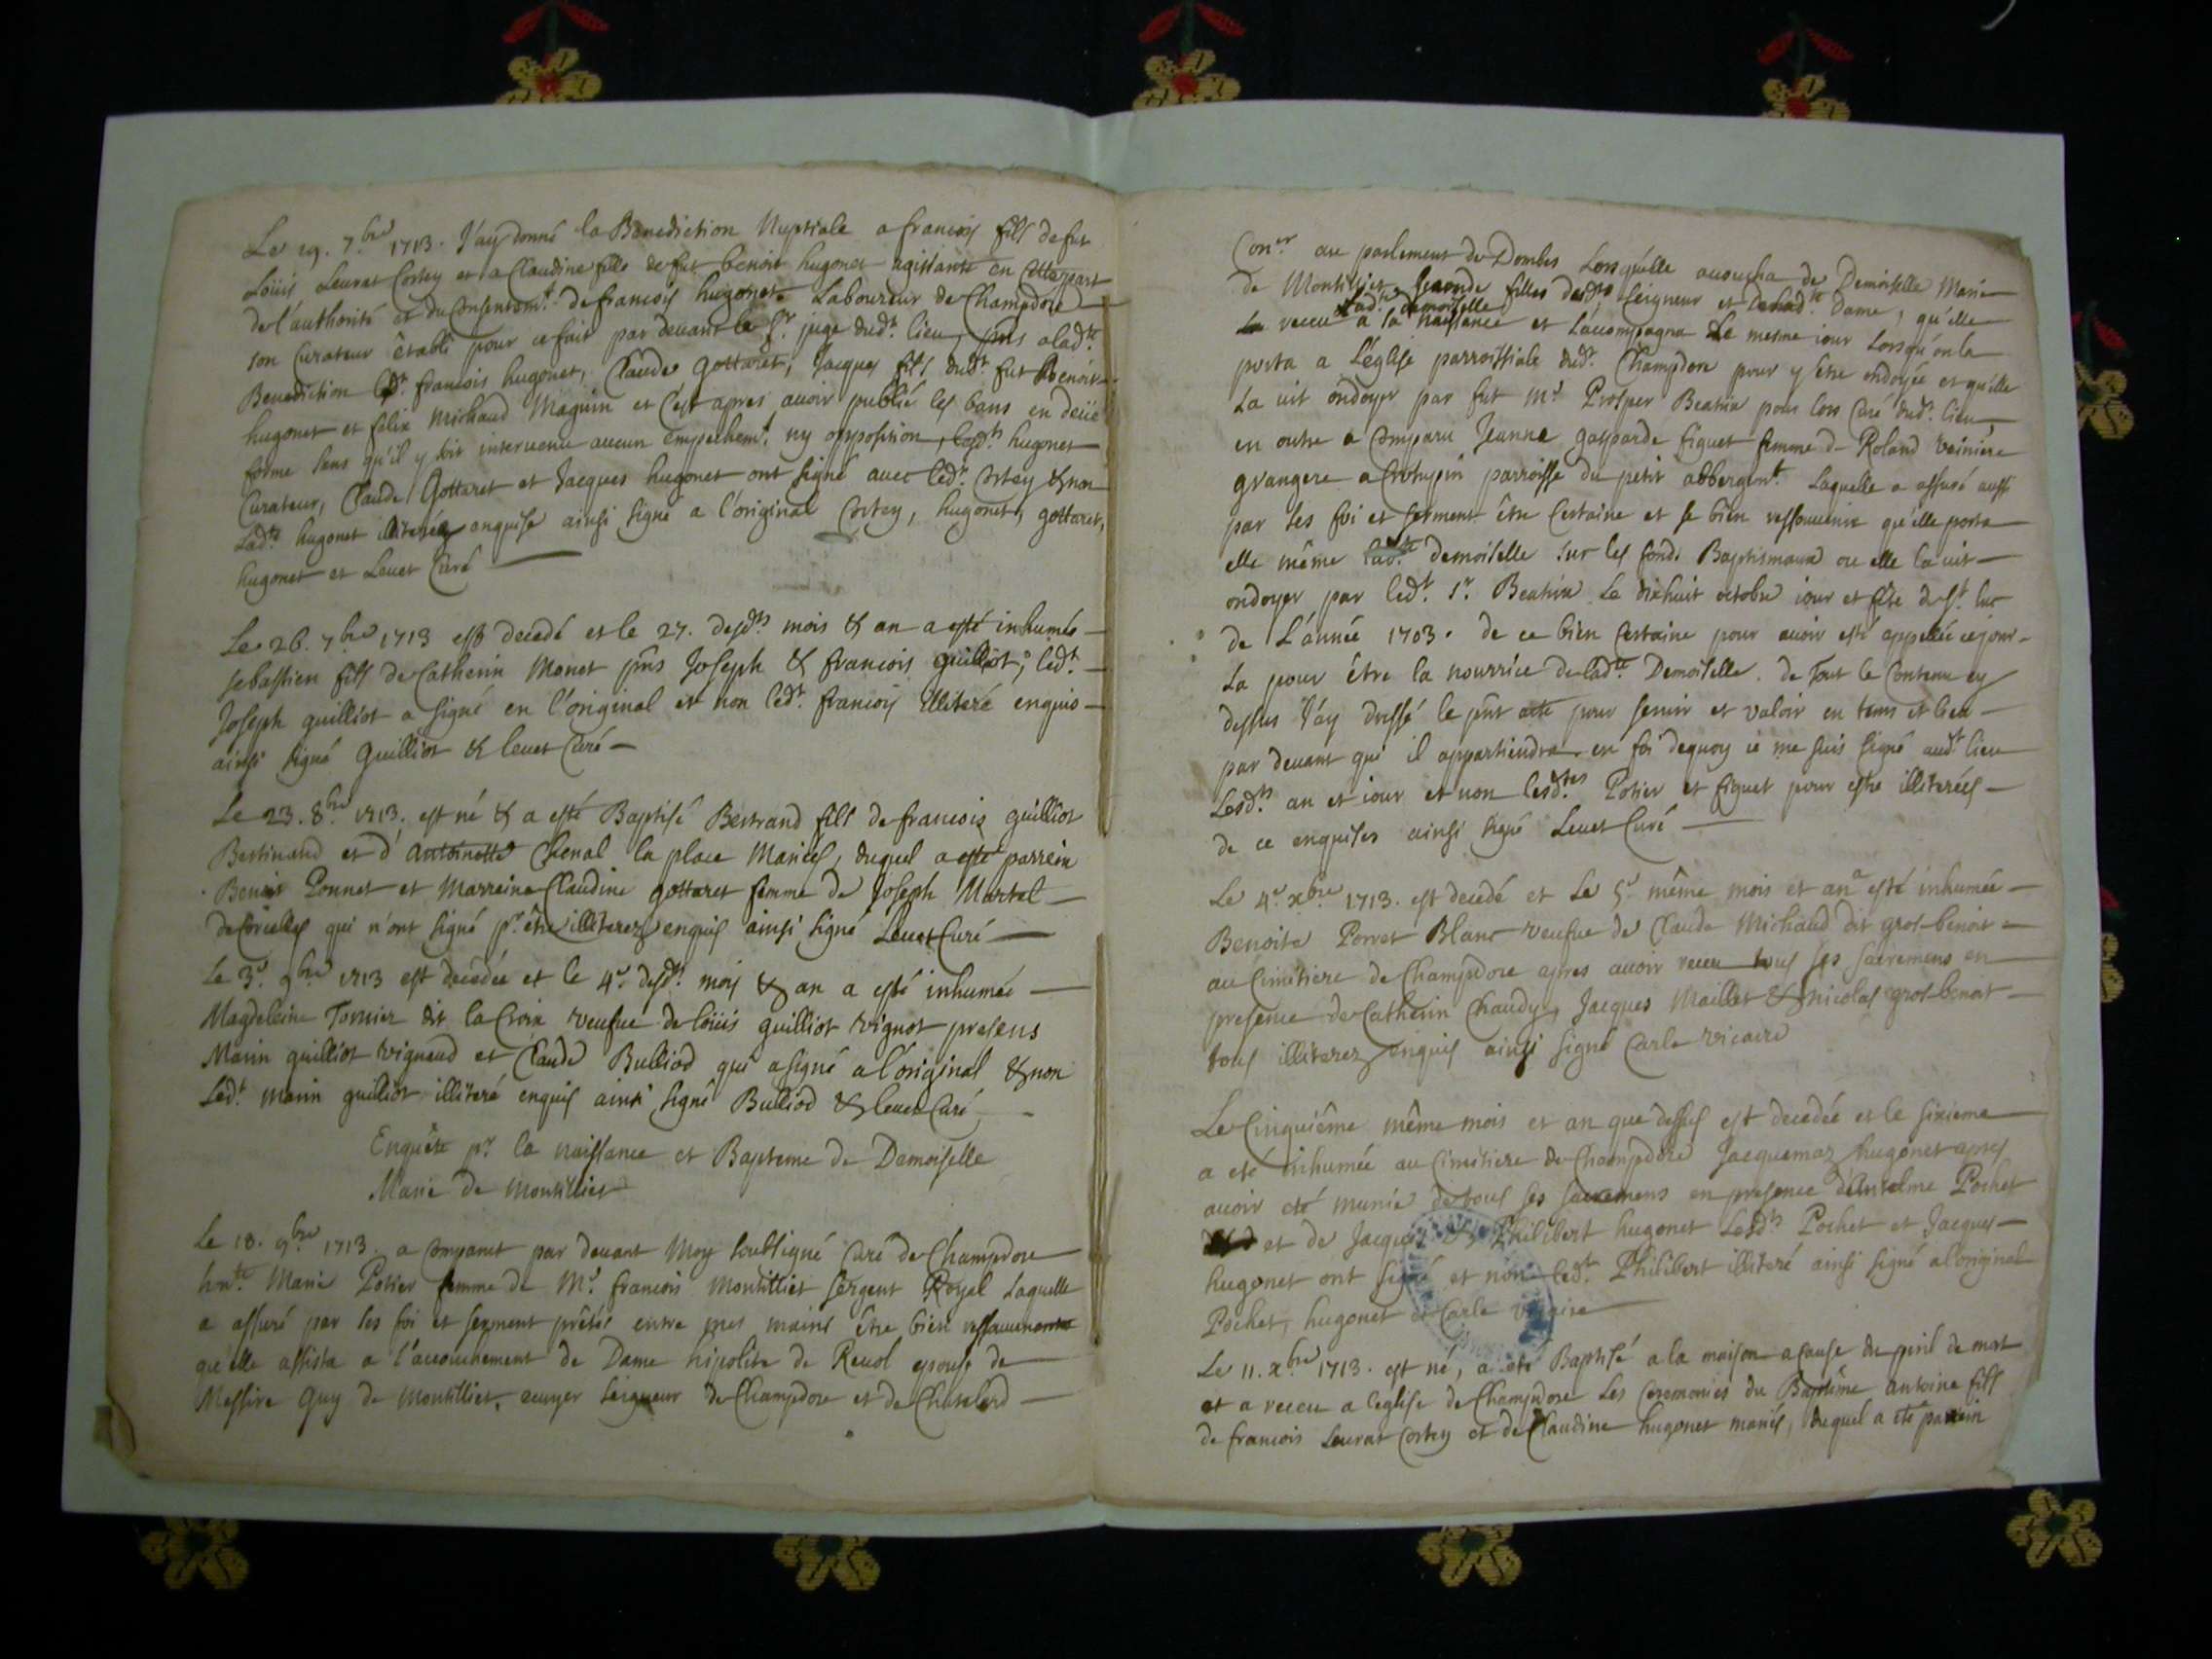 Le 19. 7.bre 1713. J'ay donné la Benediction Nuptiale a francois fils de fut
Loüis Leurat Cortey et a Claudine fille de fut benoit hugonet agissante en cette part
de l'authorité et du Consentem.t de francois hugonet Laboureur de Champdore
son Curateur êtabli pour ce fait par devant le Sr. juge dud.t lieu, pñs a lad.te
Benediction led.t francois hugonet, Claude gottaret, Jacques fils dud.t fut Benoit
hugonet et felix Michaud Maguin et c'est apres avoir publié les bans en deüe
forme sans qu'il y soit intervenu aucun empechem.t ny opposition, lesd.ts hugonet
Curateur, Claude Gottaret et Jacques hugonet ont signé avec led.t Cortey & non
Lad.te hugonet illiterée enquise ainsi signé a l'original Cortey, hugonet, gottaret,
hugonet et Levet Curé
Le 26. 7.bre 1713 est decedé et le 27. desd.ts mois & an a esté inhumé
sebastien fils de Catherin Monet pñs Joseph & francois guilliot; led.t
Joseph guilliot a signé en l'original et non led.t francois illiteré enquis
ainsi signé Guilliot & levet Curé
Le 23. 8.bre 1713. est né & a esté Baptisé Bertrand fils de francois guilliot
Bertinand et d'Antoinette Chenal la place Mariés, duquel a esté parrein
Benoit Ponnet et Marreine Claudine gottaret femme de Joseph Martel
de Corcelles qui n'ont signé p.r être illiterez enquis ainsi signé Levet Curé
Le 3.e 9.bre 1713 est decedée et le 4.e desd.t mois & an a esté inhumée
Magdeleine Tornier dit la Croix veufue de loüis guilliot vignot presens
Marin guilliot vignaud et Claude Bulliod qui a signé a l'original & non
Led.t marin guilliot illiteré enquis ainsi signé Bulliod & levet Curé
Enquête p.r la naissance et Bapteme de Demoiselle
Marie de Montilliet
Le 18. 9.bre 1713. a Comparut par devant Moy soubsigné Curé de Champdore
hn.te Marie Potier femme de M.r francois Montillet sergent Royal Laquelle
a assuré par ses foi et serment prêtés entre mes mains être bien ressouvenante
qu'elle assista a l'accouchement de Dame hipolite de Revol epouse de
Messire Guy de Montilliet, ecuyer seigneur de Champdore et de Chatelard
Con.er au parlement de Dombes Lorsqu'elle acoucha de Demoiselle Marie
de Montilliet seconde filles desd.ts seigneur et Dame, qu'elle
lad.te demoiselle
receu a sa naissance et L'acompagna Le mesme iour Lorsqu'on la
porta a L'églisе parroissiale dud.t Champdore pour y être ondoyée et qu'elle
La vit ondoyer par fut M.r Prosper Beatrix pour lors Curé dud.t lieu,
en outre a Comparu Jeanne gasparde figuet femme de Roland Veiniere
grangere a parroisse du petit abbergem.t Laquelle a assuré aussi
par ses foi et serment être Certaine et se bien ressouvenir qu'elle porta
elle même lad.te demoiselle sur les fonds Baptismaux ou elle la vit
ondoyer par led.t S.r Beatrix Le dixhuit octobre iour et fête de S.t luc
de L'année 1703. de ce bien Certaine pour avoir esté appellée ce jour
La pour être la nourrice de lad.te Demoiselle. de Tout le Contenu cy
dessus J'ay dressé le pñt acte pour servir et valoir en tems et lieu
par devant qui il appartiendra en foi dequoy ie me suis signé aud.t lieu
Lesd.ts an et iour et non lesd.tes Potier et figuet pour estre illiterées
de ce enquises ainsi signé Levet Curé
Le 4.e Xbre 1713. est decedé et Le 5.e même mois et an a esté inhumée
Benoite Porret Blanc veufue de Claude Michaud dit gros-benoit
au Cimitiere de Champdore apres avoir receu tous ses sacremens en
presence de Catherin Chaudy, Jacques Maillet & Nicolas gros-benoit
tous illiterez enquis ainsi signé Carle vicaire
Le Cinquiême même mois et an que dessus est decedée et le sixieme
a eté inhumée au Cimitiere de Champdore Jacquemaz hugonet apres
avoir eté munie de tous ses sacremens en presence d'Antelme Pochet
et de Jacques & Philibert hugonet Lesd.ts Pochet et Jacques
hugonet ont signé et non led.t Philibert illiteré ainsi signé a l'original
Pochet, hugonet et Carle vicaire
Le 11. Xbre 1713. est né, a eté Baptisé a la maison a cause du peril de mort
et a receu a l'eglise de Champdore Les Ceremonies du Baptême antoine fils
de francois Leurat Cortey et de Claudine hugonet mariés, duquel a eté parrein